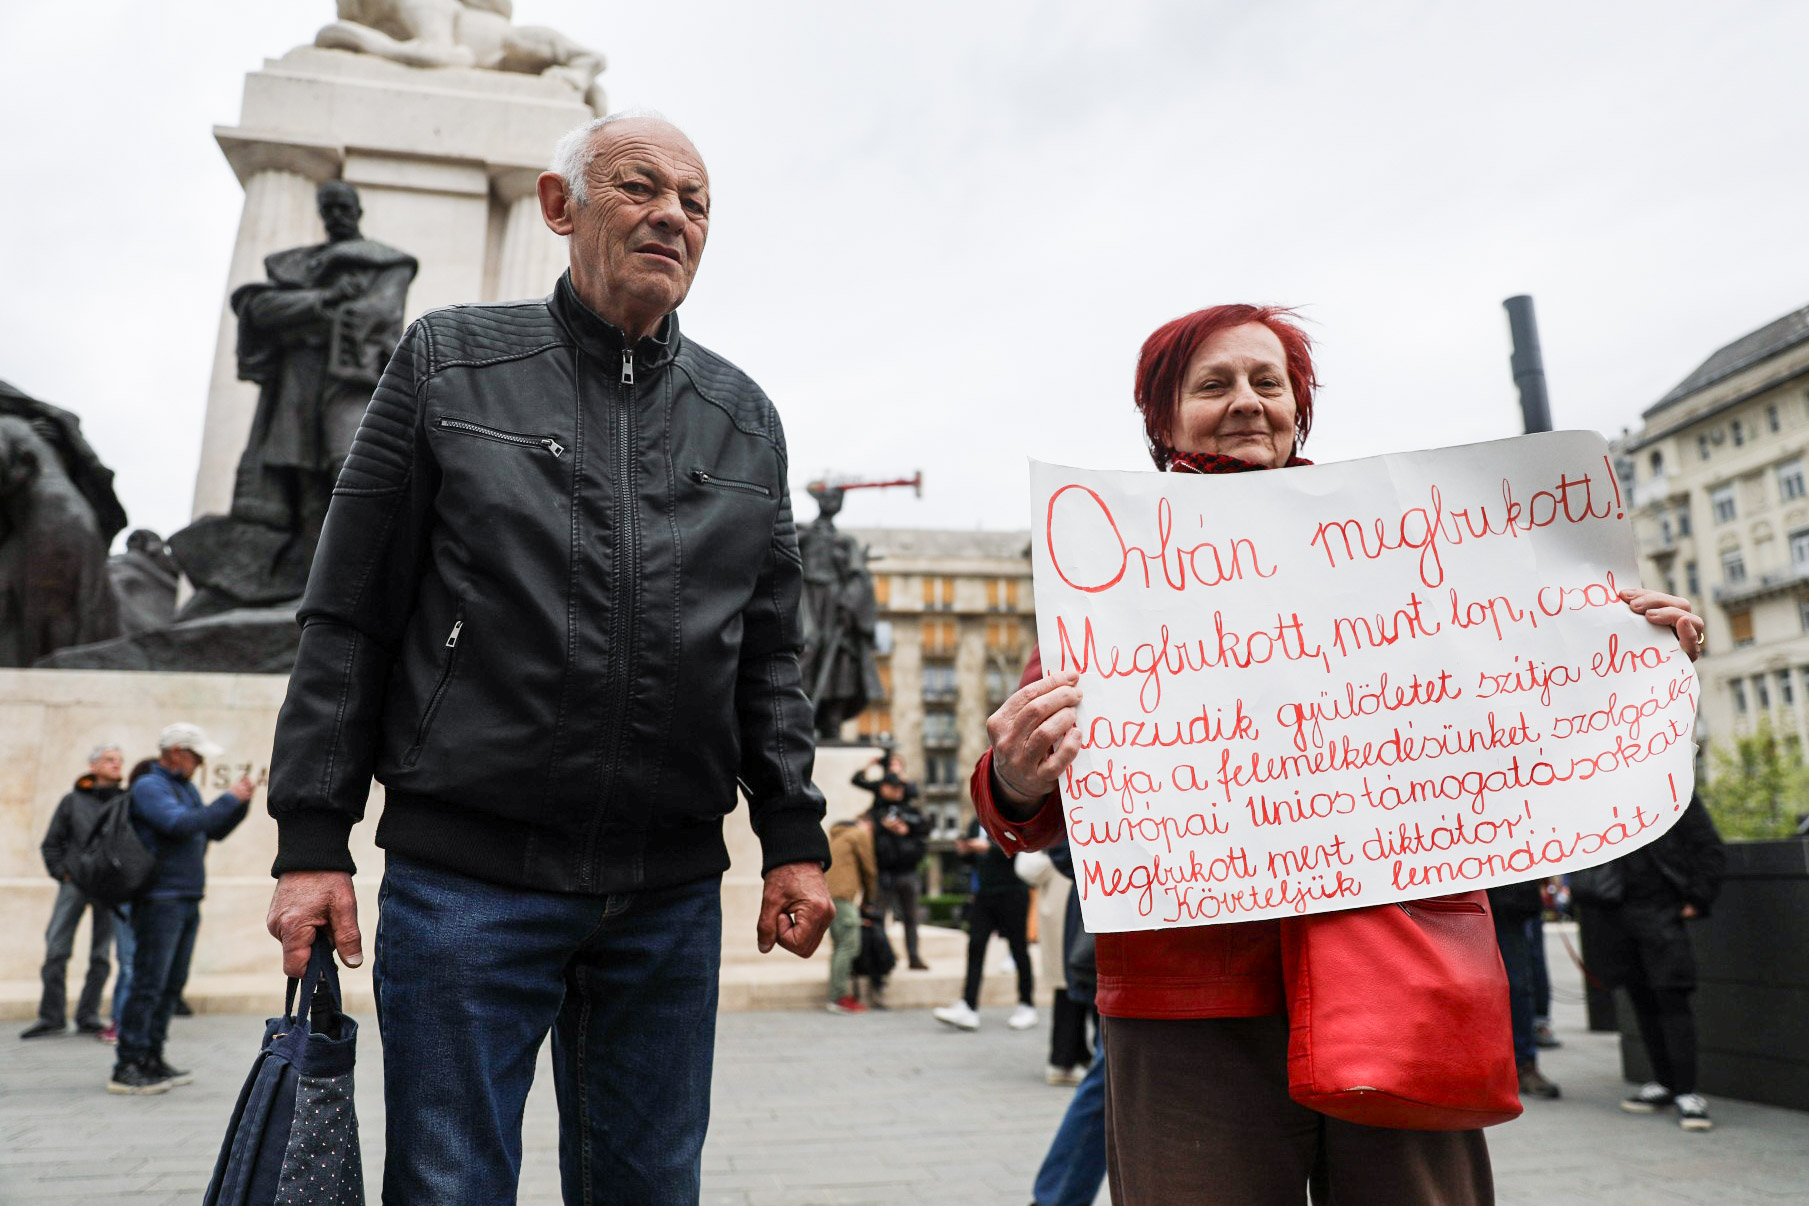 Orbán megbukott!
Megbukott, mert lop, csal
hazudik gyülöletet szítja elra-
bolja a felemelkedésünket szolgáló
Európai Unios támogatásokat,
Megbukott mert diktátor!
Követeljük lemondását!